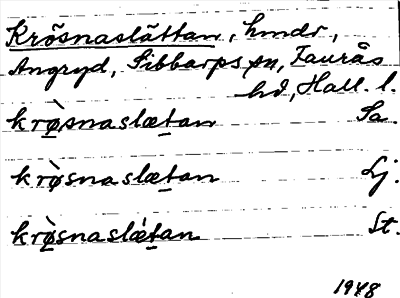 Krösnaslättan, hmdr,
Angryd, Sibbarps sn, Faurås
hd, Hall. l.
krø̀snaslætan Sa.
krø̀snaslætan Lj.
krø̀snaslǽtan St.
1948